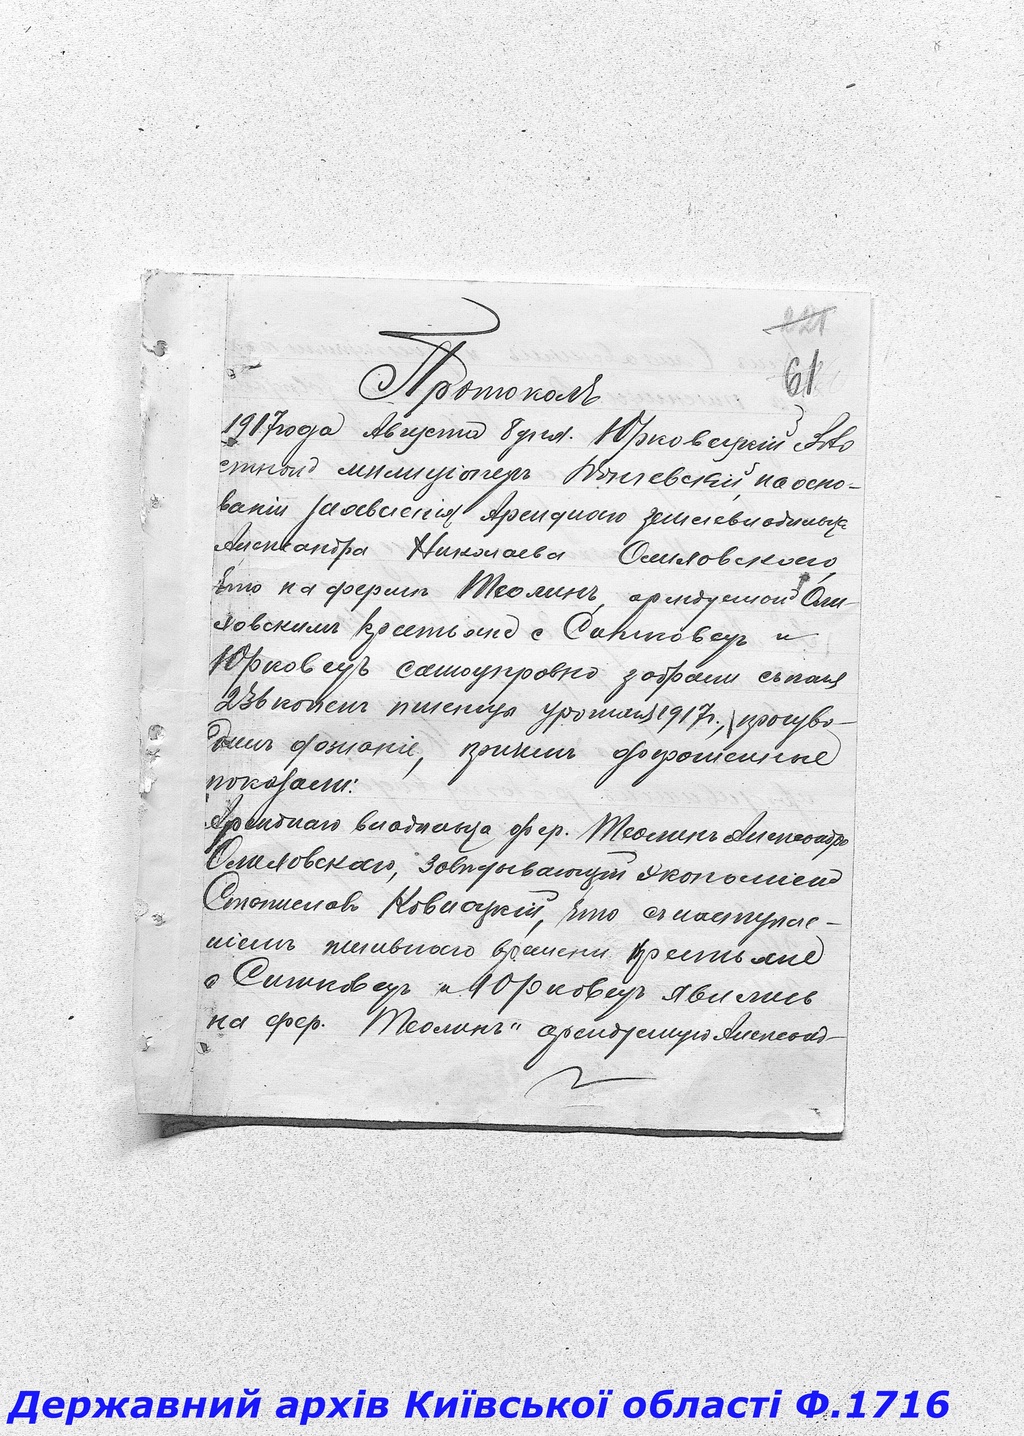 221
61
Протоколъ
1917 года Августа 8 дня. Юрковецкій
милиціонеръ на осно-
ваніи заявленія Арендного землевладельца
Александра Николаева Омиловского,
что на ферме Теолинъ, арендуемой Оми-
ловскимъ крестьяне с Ситковец и
Юрковецъ самоуправно забрали съ поля
236 копенъ пшеницы урожая 1917 г., произво-
дилъ дознаніе, причемъ допрошенные
показали:
Арендного владельца фер. Теолинъ Александра
Омиловского, Заведывающій Экономіей
Станиславъ Ковнацкій, что с наступле-
ніемъ жнивного времени крестьяне
с Ситковец и Юрковец явились
на фер. Теолинъ" арендуемую Александ-
Державний архів Київської області Ф.1716